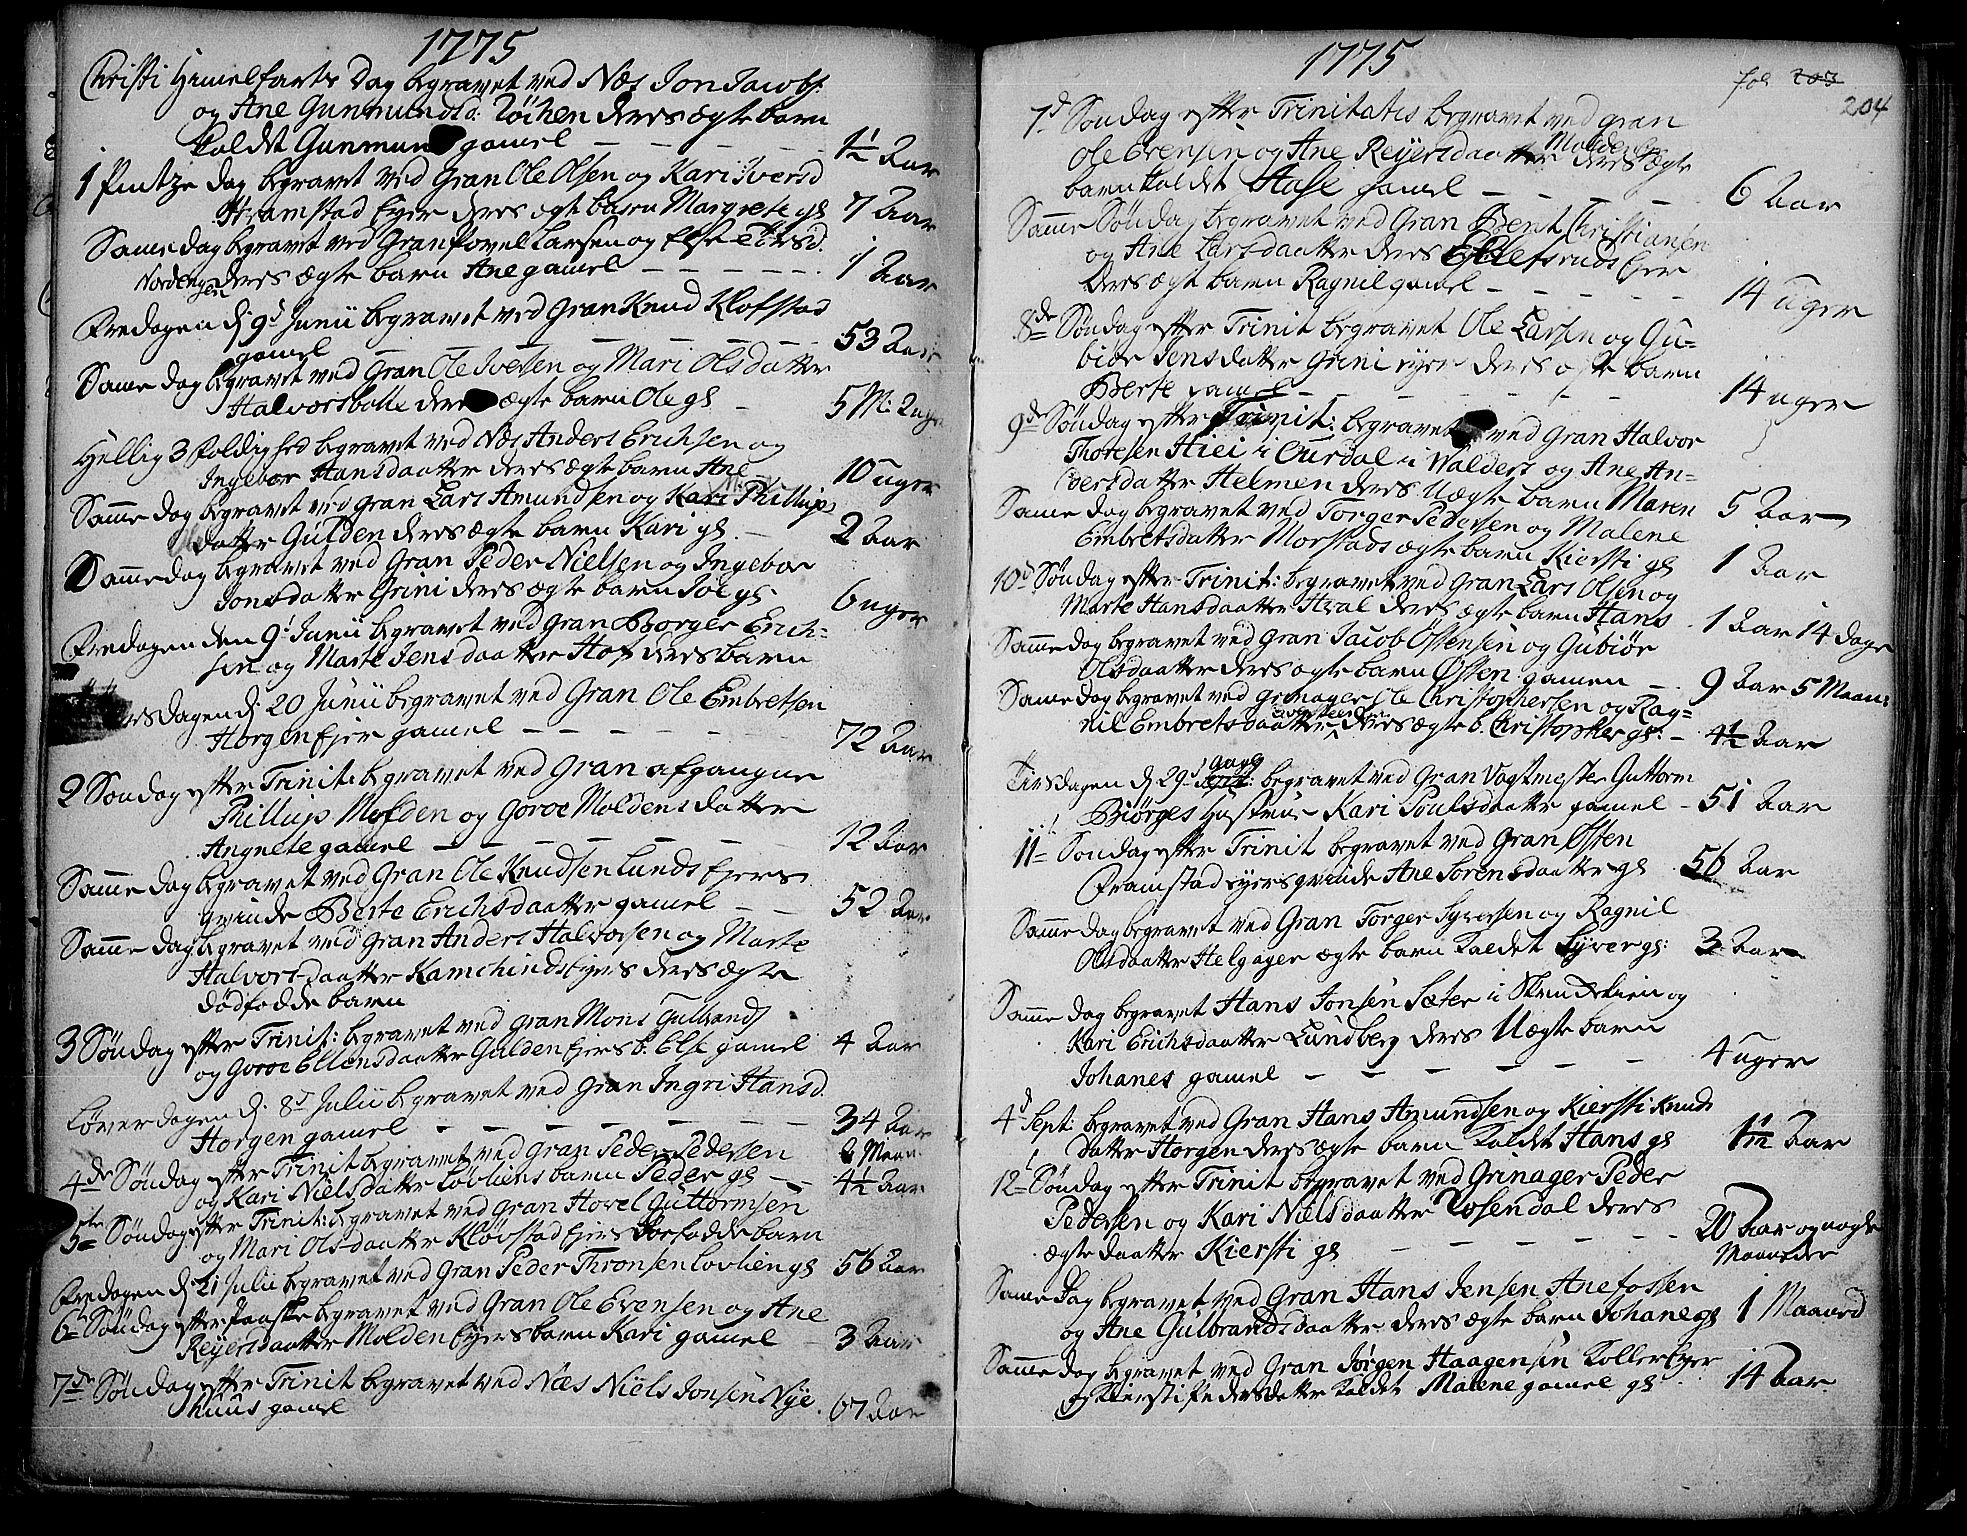 1775
Christi Himelfarts Dag begravet ved Næs Jon Jacobs:
og Ane Gunmundsd: deres ægte barn
kaldet Gunmun gamel — — — — 1½ Aar
1 Pintze dag begravet ved Gran Ole Olsen og Kari Iversd
Framstad Ejer deres ægte barn Margrete gl 7 Aar
Samme dag begravet ved Gran Povel Larsen og Else
Nordengen deres ægte barn Ane gamel — — — — 1 Aar
Fredagen d. 9d Junii begravet ved Gran Knud Klofstad
gamel — — — — — 53 Aar
Samme dag begravet ved Gran Ole Iversen og Mari Olsdatter
Halvorsbolle deres ægte barn Ole gl — 5 M: 2 uger
Hellig 3 foldighed begravet ved Næs Anders Erichsen og
Ingebor Hansdaatter deres ægte barn Ane — 10 uger
Samme dag begravet ved Gran Lars Amundsen og Kari Phillips
datter Gulden deres ægte barn Kari gl. — 2 Aar
Samme dag begravet ved Gran Peder Nielsen og Ingebor
Jonsdatter Grini deres ægte barn gl. 6 uger
Fredagen den 9d Junii begravet ved Gran Borger Erich=
sen og Marte Jensdaatter Hof deres barn
dagen d. 20 Junii begravet ved Gran Ole Embretsen
Horgen Ejer gamel — — — — — 72 Aar
2 Søndag efter Trinit: begravet ved Gran afgangne
Phillip Molden og Goroe Moldens datter
Angnete gamel — — — — 12 Aar
Samme dag begravet ved Gran Ole Knudsen Lunds Ejers
qvinde Berte Erichsdaatter gamel — — 52 Aar
Samme dag begravet ved Gran Anders Halvorsen og Marte
Halvorsdaatter Kamchinds Ejers deres ægte
dødfødde barn
3 Søndag efter Trinit: begravet ved Gran Mons Gulbrands
og Goroe Ellensdaatter Gulden Ejers b: Else gamel 4 Aar
Løverdagen d. 8d Julii begravet ved Gran Ingri Hansd.
Horgen gamel — — — — — — 34 Aar
4de Søndag efter Trinit begravet ved Gran Peder Pedersen 2 Maan
og Kari Nielsdaatter Løvliens barn Peder gl — — 4½ Aar
5te Søndag efter Trinit: begravet ved Gran Hovel Guttormsen
og Mari Olsdaatter Kløvstad Ejers barn
Fredagen d. 21 Julii begravet ved Gran Peder Thronsen Lovlien gl 56 Aar
6d Søndag efter Paaske begravet ved Gran Ole Evensen og Ane
Reyersdaatter Molden Ejers barn Kari gamel 3 Aar
7de Søndag efter Trinit begravet ved Næs Niels Jonsen Nye
huus gamel 67 Aar
1775
fol 203
204
7d Søndag efter Trinitatis begravet ved Gran
Ole Evensen og Ane Reyersdaatter Molden deres ægte
barn kaldet Aase gamel — — — — 6 Aar
Samme Søndag begravet ved Gran Bent Christiansen
og Ane Larsdaatter deres Ejer
deres ægte barn Ragnil gamel — — — — 14 uger
8de Søndag efter Trinit begravet Ole Larsen og Gu=
biør Jensdatter Grini ejer deres ægte barn
Berte gamel — — — — — 14 uger
9de Søndag efter Trinit: begravet ved Gran Halvor
Thoresen i Ourdal i Valders og Ane An=
dersdatter Helmen deres Uægte barn Maren 5 Aar
Samme dag begravet ved Torger Pedersen og Malene
Embretsdatter Morstads ægte barn Kiersti gl 1 Aar
10d Søndag efter Trinit: begravet ved Gran Lars Olsen og
Marte Hansdaatter Hval deres ægte barn Hans — 1 Aar 14 dage
Samme dag begravet ved Gran Jacob Østensen og Gubiør
Olsdaatter deres ægte barn Østen gamen — 9 Aar 5 Maan:
Samme dag begravet ved Grinager Ole Christophersen og Rag=
nil Embretsdaatter deres ægte b. Christopher gl: — 4½ Aar
Tirsdagen d. 29d Augs begravet ved Gran Vagtmester Guttorm
Biørges Hustrue Kari Poulsdaatter gamel — 51 Aar
11 Søndag efter Trinit begravet ved Gran Østen
Framstad ejers qvinde Ane Sorensdaatter gl 56 Aar
Samme dag begravet ved Gran Torger Syversen og Ragnil
Olsdaatter Helgager ægte barn kaldet Syver gl: 3 Aar
Samme dag begravet Hans Jonsen Sæter i og
Kari Erichsdaatter Lundberg deres Uægte barn
Johanes gamel — — — — — 4 uger
4d Sept: begravet ved Gran Hans Amundsen og Kiersti Knuds
datter Horgen deres ægte barn kaldet Hans gl 1½ Aar
12 Søndag efter Trinit begravet ved Grinager Peder
Pedersen og Kari Nielsdaatter Rosendal deres
ægte daatter Kiersti gl — — — — 20 Aar og nogle
Maaneder
Samme Dag begravet ved Gran Hans Jensen
og Ane Gulbrandsdaatter deres ægte barn Johane gl 1 Maaned
Samme dag begravet ved Gran Jørgen Haagensen Koller Ejer
og Kiersti Pedersdatter kaldet Malene gamel gl 14 Aar